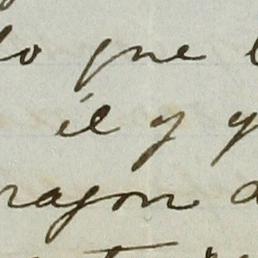 lo que l
él y y
ragon d